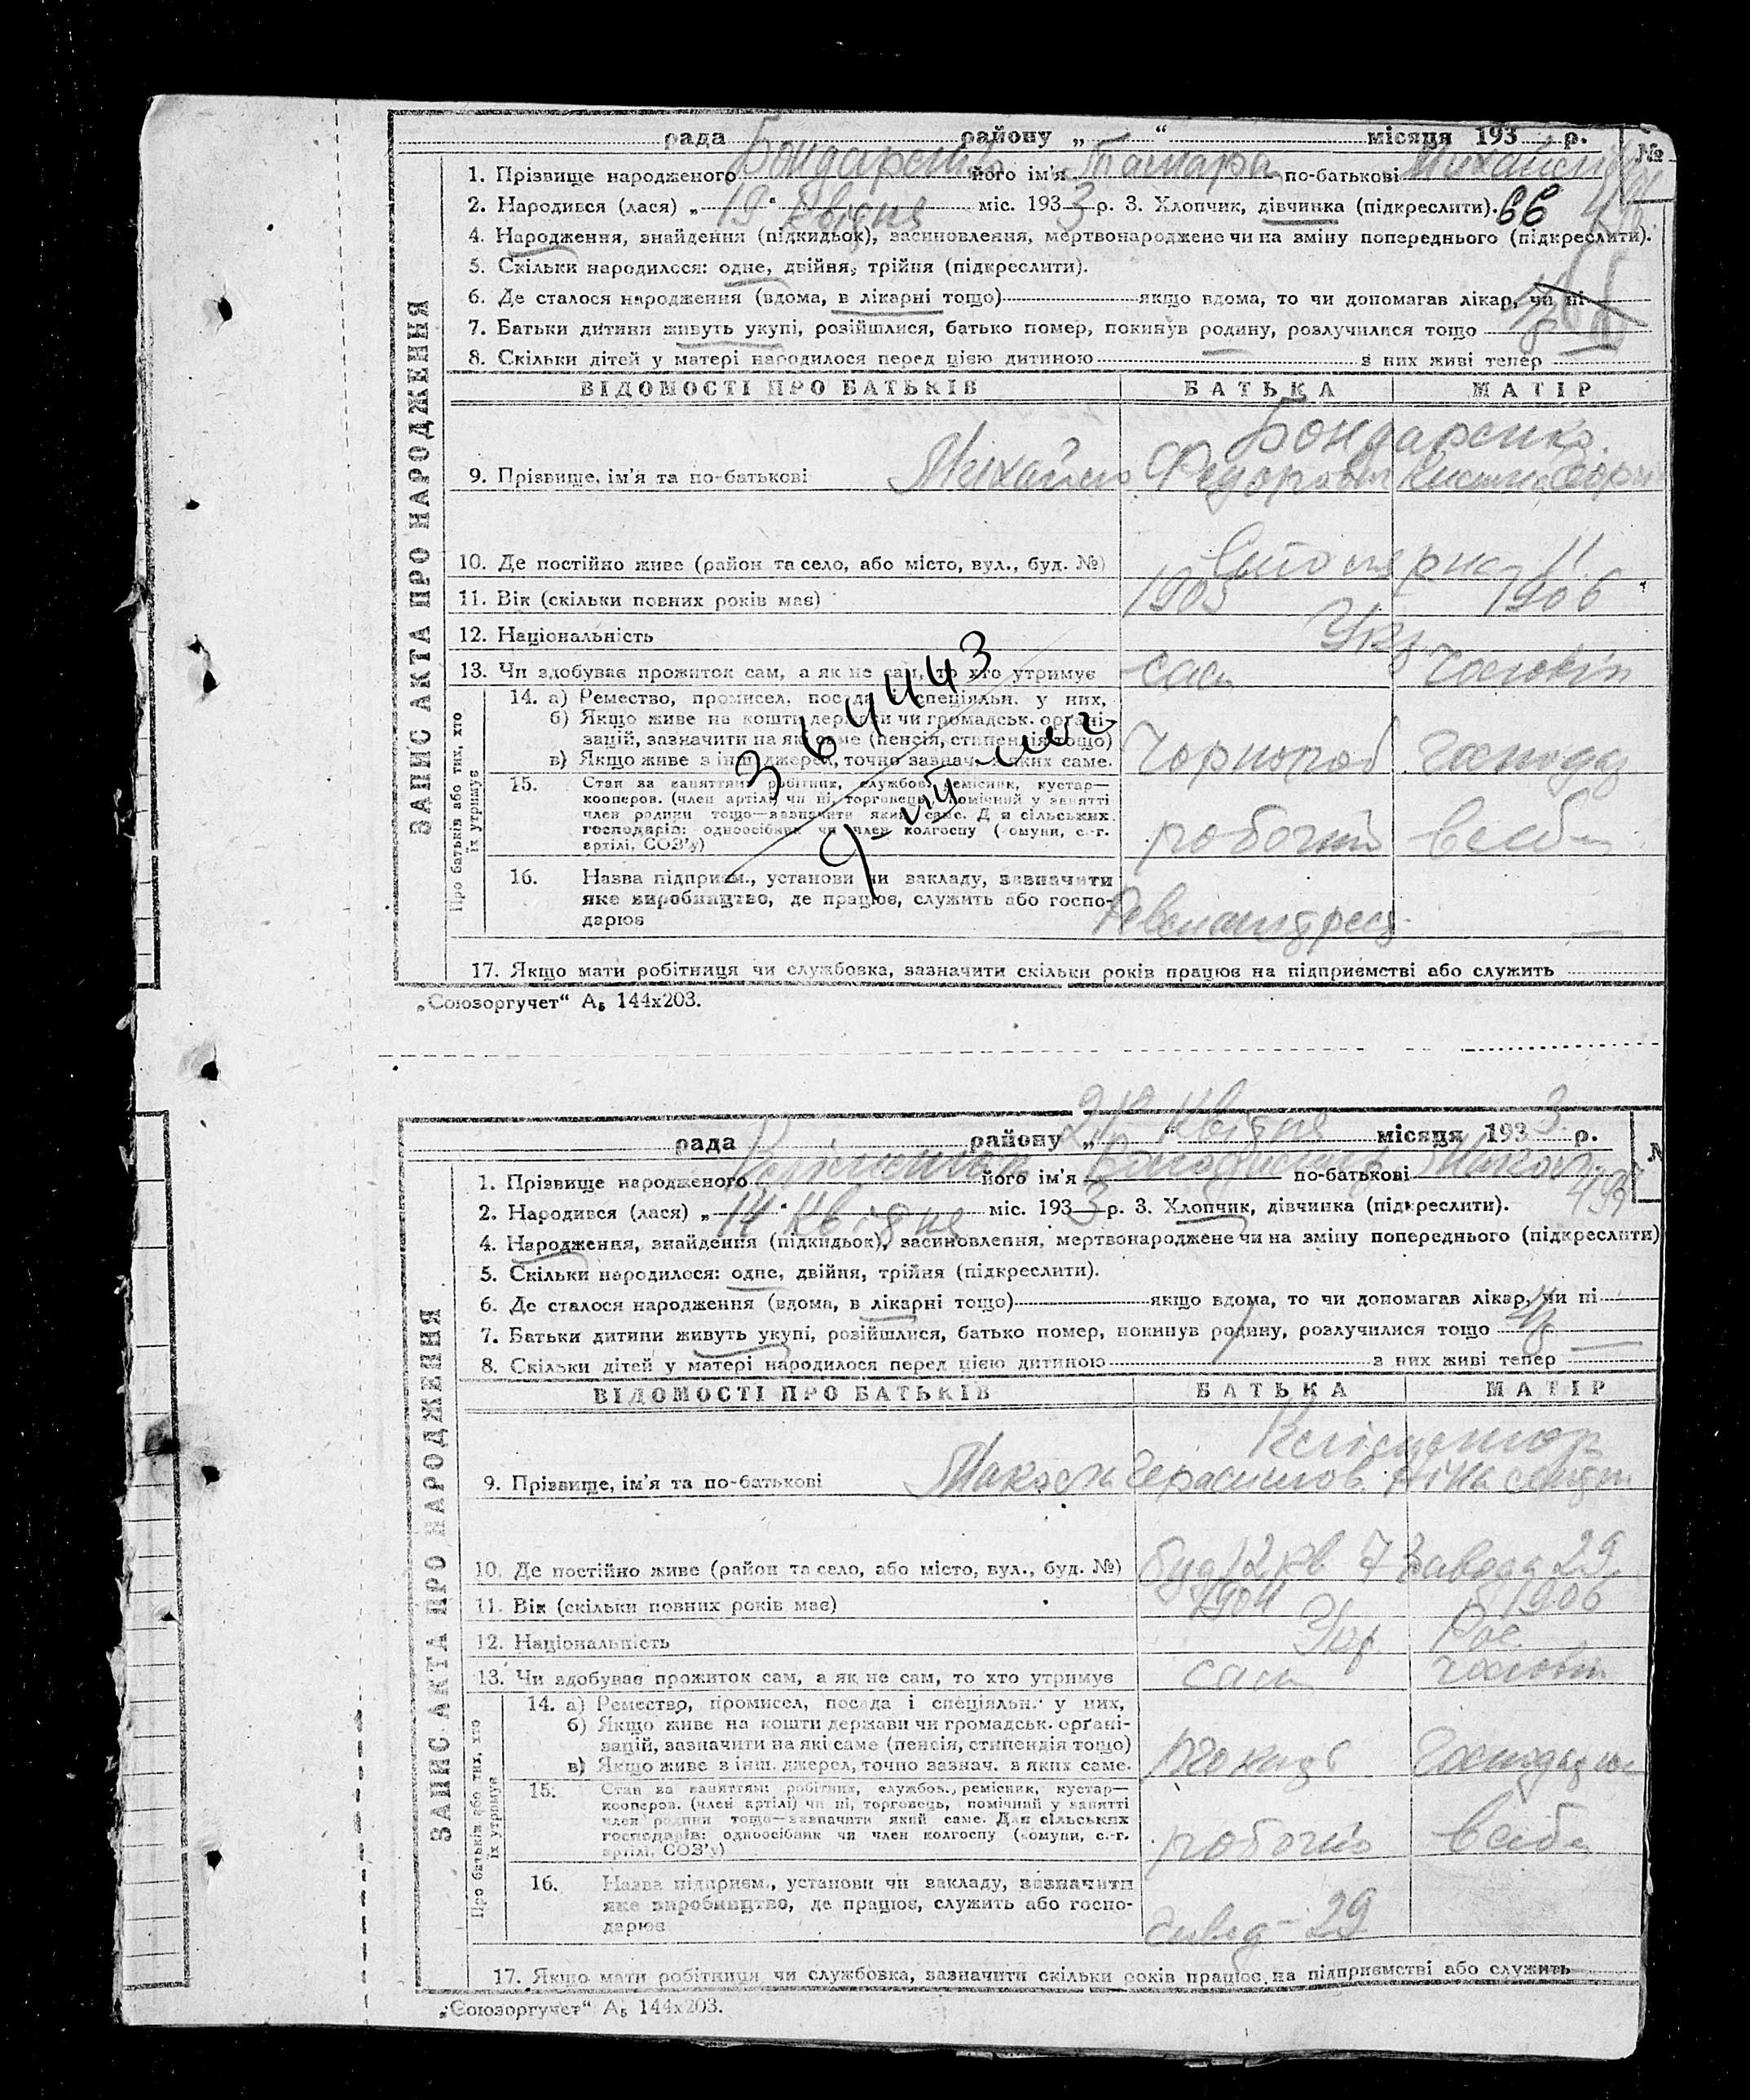 рада Бондаренко району „ “ місяця 193 р.
№
1. Прізвище народженого його ім'я Тамара по-батькові
2. Народився (лася) „ 19 “ Квітня міс. 193 3 р. 3. Хлопчик, дівчинка (підкреслити). 66
4. Народження, знайдення (підкидьок), засиновлення, мертвонароджене чи на зміну попереднього (підкреслити).
5. Скільки народилося: одне, двійня, трійня (підкреслити).
6. Де сталося народження (вдома, в лікарні тощо) якщо вдома, то чи допомагав лікар, чи ні
7. Батьки дитини живуть укупі, розійшлися, батько помер, покинув родину, розлучилися тощо
8. Скільки дітей у матері народилося перед цією дитиною з них живі тепер
ВІДОМОСТІ ПРО БАТЬКІВ БАТЬКА МАТІР
ЗАПИС АКТА ПРО НАРОДЖЕННЯ
Бондаренко
9. Прізвище, ім'я та по-батькові Михайло Федорович
10. Де постійно живе (район та село, або місто, вул., буд. №) 11
11. Вік (скільки повних років має) 1905 1906
12. Національність Укр.
13. Чи здобуває прожиток сам, а як не сам, то хто утримує сам чоловік
Про батьків або тих, хто їх утримує
14. а) Ремество, промисел, посада і спеціяльн. у них,
б) Якщо живе на кошти держави чи громадськ. органі-
зацій, зазначити на які саме (пенсія, стипендія тощо)
в) Якщо живе з інш. джерел, точно зазнач. з яких саме. Чорнороб господар
15. Стан за заняттям: робітник, службов., ремісник, кустар—
кооперов. (член артілі) чи ні, торговець, помічний у занятті
член родини тощо—зазначити який саме. Для сільських
господарів: одноосібник чи член колгоспу (комуни, с.-г.
артілі, СОЗ'у) робочий
16. Назва підприєм., установи чи закладу, зазначити
яке виробництво, де працює, служить або госпо-
дарює
17. Якщо мати робітниця чи службовка, зазначити скільки років працює на підприємстві або служить
„Союзоргучет“ А₅ 144x203.
21го Квітня 3
рада району „ “ місяця 193 р.
1. Прізвище народженого його ім'я по-батькові Микол.
2. Народився (лася) „ 14 “ Квітня міс. 193 3 р. 3. Хлопчик, дівчинка (підкреслити).
4. Народження, знайдення (підкидьок), засиновлення, мертвонароджене чи на зміну попереднього (підкреслити)
5. Скільки народилося: одне, двійня, трійня (підкреслити).
6. Де сталося народження (вдома, в лікарні тощо) якщо вдома, то чи допомагав лікар, чи ні
7. Батьки дитини живуть укупі, розійшлися, батько помер, покинув родину, розлучилися тощо
8. Скільки дітей у матері народилося перед цією дитиною 1 з них живі тепер
ВІДОМОСТІ ПРО БАТЬКІВ БАТЬКА МАТІР
ЗАПИС АКТА ПРО НАРОДЖЕННЯ
9. Прізвище, ім'я та по-батькові Микола Герасимов. Ніна
10. Де постійно живе (район та село, або місто, вул., буд. №) буд 12 кв 7 завода 29
11. Вік (скільки повних років має) 1904 1906
12. Національність Укр. Рос.
13. Чи здобуває прожиток сам, а як не сам, то хто утримує сам чоловік
Про батьків або тих, хто їх утримує
14. а) Ремество, промисел, посада і спеціяльн. у них,
б) Якщо живе на кошти держави чи громадськ. органі-
зацій, зазначити на які саме (пенсія, стипендія тощо)
в) Якщо живе з інш. джерел, точно зазнач. з яких саме.
15. Стан за заняттям: робітник, службов., ремісник, кустар—
кооперов. (член артілі) чи ні, торговець, помічний у занятті
член родини тощо—зазначити який саме. Для сільських
господарів: одноосібник чи член колгоспу (комуни, с.-г.
артілі, СОЗ'у) робочий
16. Назва підприєм., установи чи закладу, зазначити
яке виробництво, де працює, служить або госпо-
дарює завод – 29
17. Якщо мати робітниця чи службовка, зазначити скільки років працює на підприємстві або служить
„Союзоргучет“ А₅ 144x203.